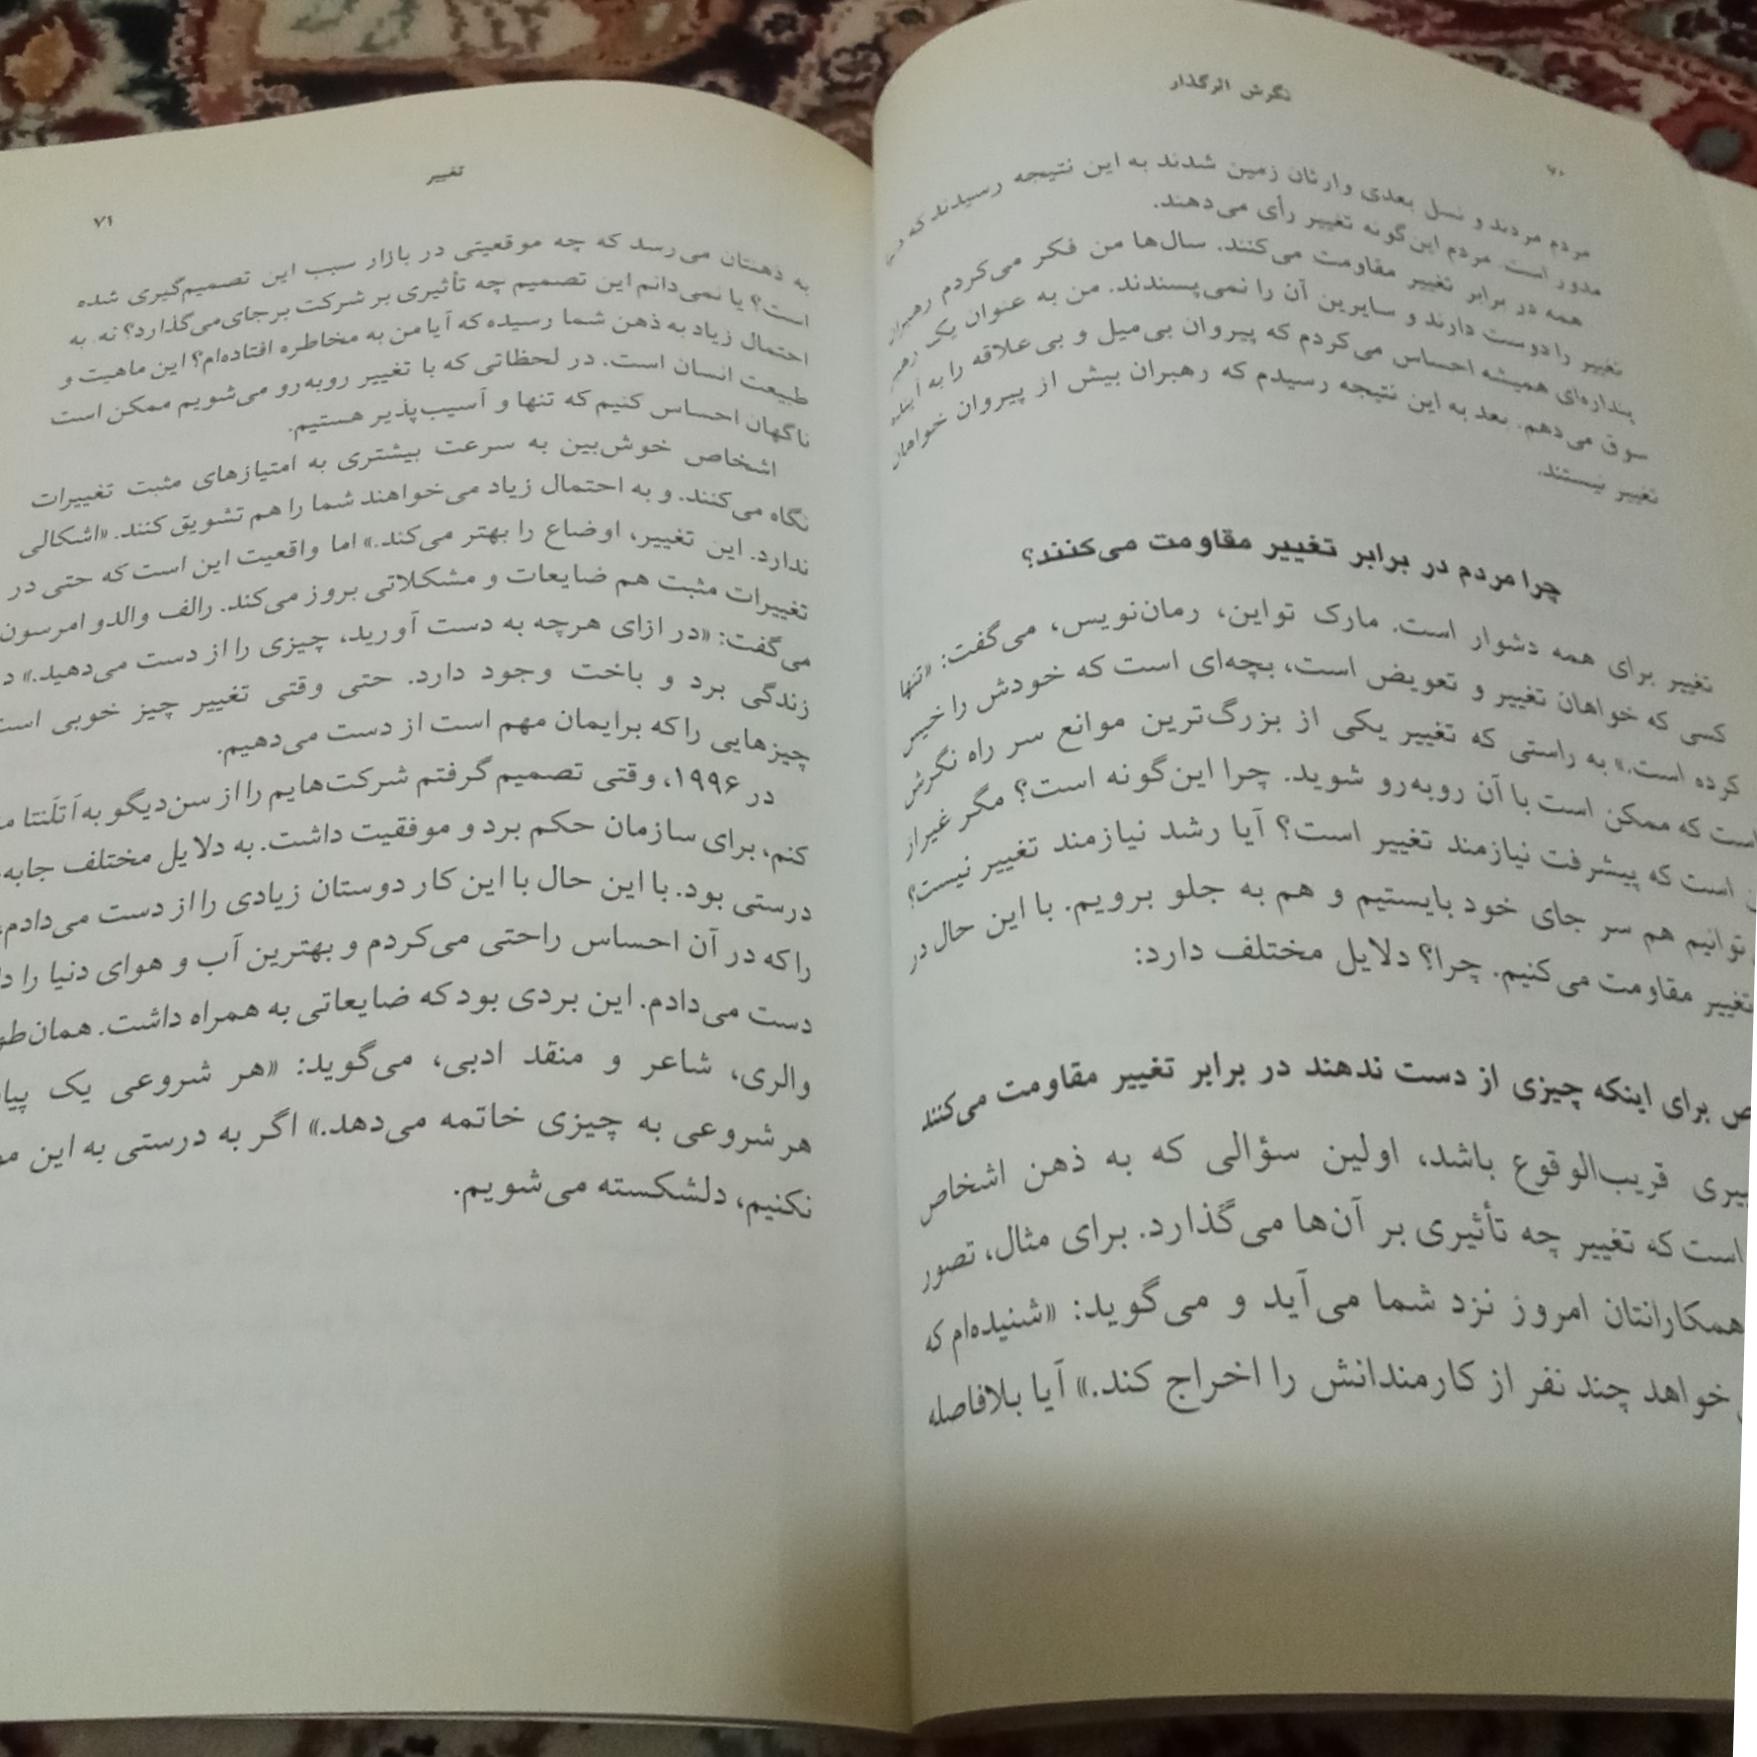 نگرش اثرگذار
۷۰
مردم مردند و نسل بعدی وارثان زمین شدند به این نتیجه رسیدند که
مدور است. مردم این‌گونه تغییر رأی می‌دهند.
همه در برابر تغییر مقاومت می‌کنند. سال‌ها من فکر می‌کردم رهبران
تغییر را دوست دارند و سایرین آن را نمی‌پسندند. من به عنوان یک رهبر
همیشه احساس می‌کردم که پیروان بی‌میل و بی‌علاقه را به آینده
سوق می‌دهم. بعد به این نتیجه رسیدم که رهبران بیش از پیروان خواهان
تغییر نیستند.
چرا مردم در برابر تغییر مقاومت می‌کنند؟
تغییر برای همه دشوار است. مارک تواین، رمان‌نویس، می‌گفت: «تنها
کسی که خواهان تغییر و تعویض است، بچه‌ای است که خودش را خیس
کرده است.» به راستی که تغییر یکی از بزرگ‌ترین موانع سر راه نگرش
است که ممکن است با آن روبه‌رو شوید. چرا این‌گونه است؟ مگر غیر از
است که پیشرفت نیازمند تغییر است؟ آیا رشد نیازمند تغییر نیست؟
توانیم هم سر جای خود بایستیم و هم به جلو برویم. با این حال در
تغییر مقاومت می‌کنیم. چرا؟ دلایل مختلف دارد:
برای اینکه چیزی از دست ندهند در برابر تغییر مقاومت می‌کنند
قریب‌الوقوع باشد، اولین سؤالی که به ذهن اشخاص
است که تغییر چه تأثیری بر آن‌ها می‌گذارد. برای مثال، تصور
همکارانتان امروز نزد شما می‌آید و می‌گوید: «شنیده‌ام که
خواهد چند نفر از کارمندانش را اخراج کند.» آیا بلافاصله
تغییر
۷۱
به ذهنتان می‌رسد که چه موقعیتی در بازار سبب این تصمیم‌گیری شده
است؟ یا نمی‌دانم این تصمیم چه تأثیری بر شرکت برجای می‌گذارد؟ نه. به
احتمال زیاد به ذهن شما رسیده که آیا من به مخاطره افتاده‌ام؟ این ماهیت و
طبیعت انسان است. در لحظاتی که با تغییر روبه‌رو می‌شویم ممکن است
ناگهان احساس کنیم که تنها و آسیب‌پذیر هستیم.
اشخاص خوش‌بین به سرعت بیشتری به امتیازهای مثبت تغییرات
نگاه می‌کنند. و به احتمال زیاد می‌خواهند شما را هم تشویق کنند. «اشکالی
ندارد. این تغییر، اوضاع را بهتر می‌کند.» اما واقعیت این است که حتی در
تغییرات مثبت هم ضایعات و مشکلاتی بروز می‌کند. رالف والدو امرسون
می‌گفت: «در ازای هرچه به دست آورید، چیزی را از دست می‌دهید.»
زندگی برد و باخت وجود دارد. حتی وقتی تغییر چیز خوبی است
چیزهایی را که برایمان مهم است از دست می‌دهیم.
در ۱۹۹۶، وقتی تصمیم گرفتم شرکت‌هایم را از سن‌دیگو به آتلَنتا
کنم، برای سازمان حکم برد و موفقیت داشت. به دلایل مختلف
درستی بود. با این حال با این کار دوستان زیادی را از دست می‌دادم،
را که در آن احساس راحتی می‌کردم و بهترین آب و هوای دنیا را
دست می‌دادم. این بردی بود که ضایعاتی به همراه داشت.
والری، شاعر و منقد ادبی، می‌گوید: «هر شروعی یک
هر شروعی به چیزی خاتمه می‌دهد.» اگر به درستی به این
نکنیم، دلشکسته می‌شویم.